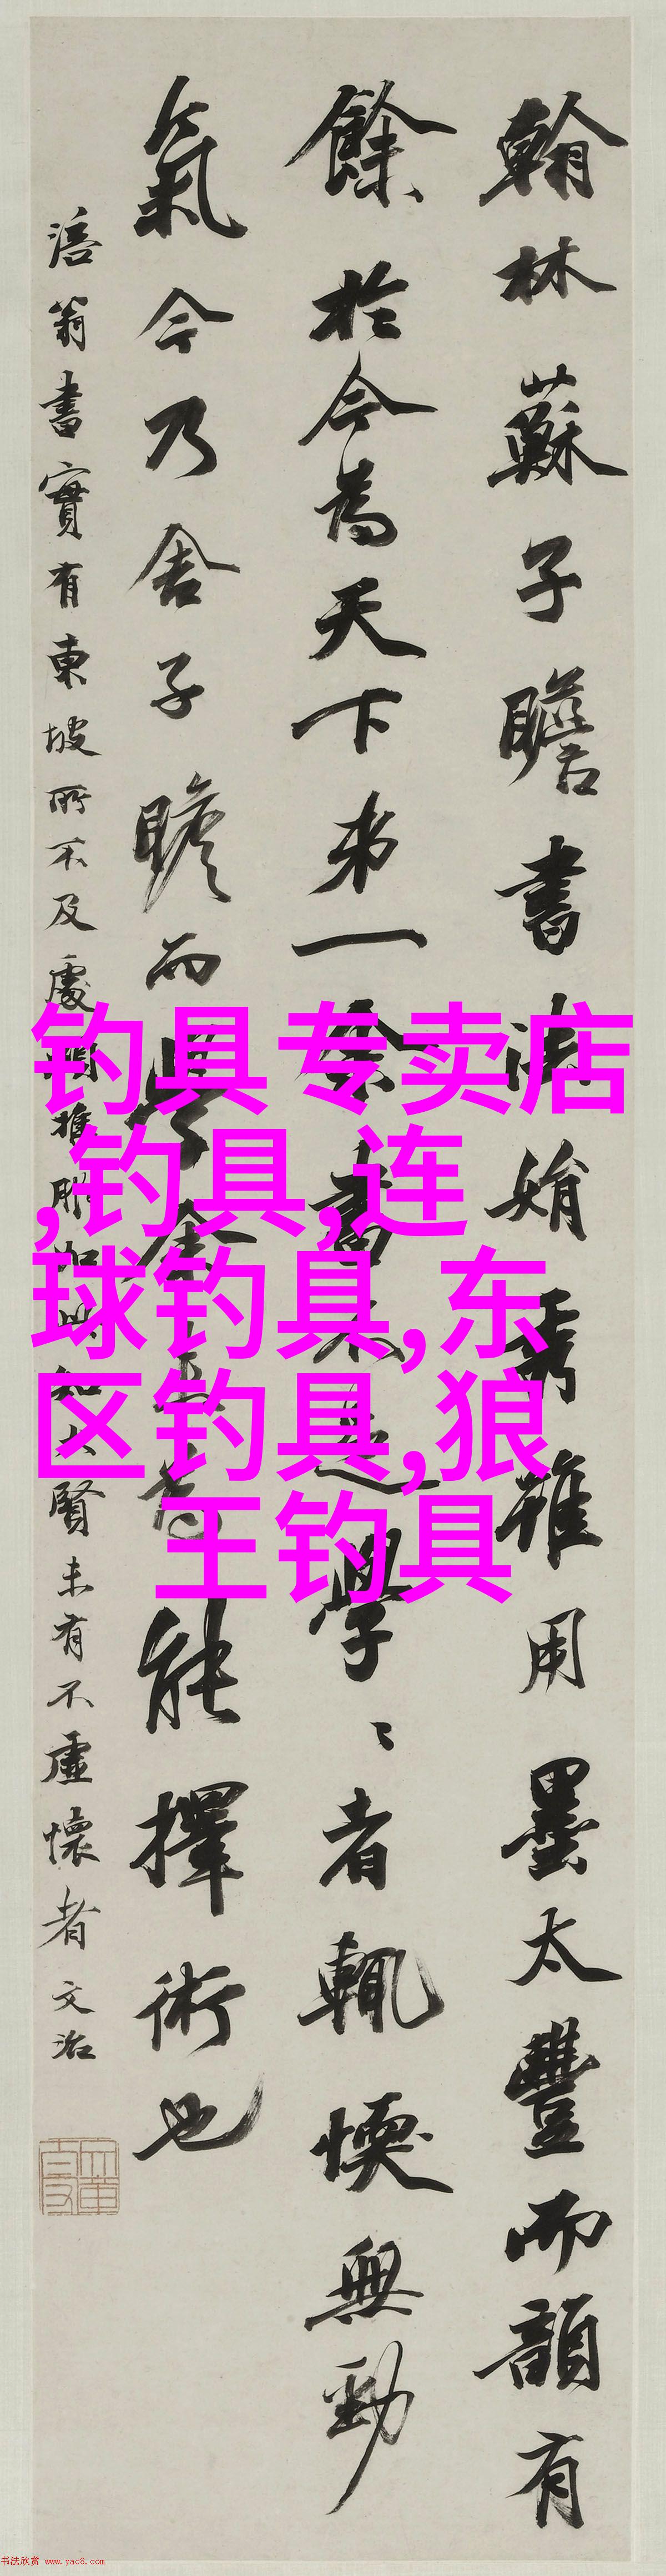 翰林蘇子瞻書法娟秀雖用墨太豐而韻有
餘於今為天下第一余書不足學學者輒愞無勁
氣今乃舍子瞻而學余未為能擇術也
涪翁書實有東坡所不及處推服如此知大賢未有不虛懷者文治
钓具专卖店
,钓具,连
球钓具,东
区钓具,狼
王钓具
书法欣赏 www.yac8.com